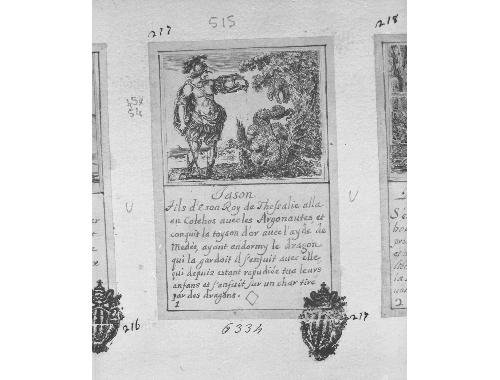 217
515
218
U
U
Jason
Fils d'Eson Roy de Thessalie alla
en Colchos avec les Argonautes et
conquit la toyson d'or avec l'ayde de
Medée, ayant endormy le dragon
qui la gardoit il s'enfuit avec elle
qui depuis estant repudiée tua leurs
enfans et s'enfuit sur un char tiré
par des dragons.
1
2
216
6334
217